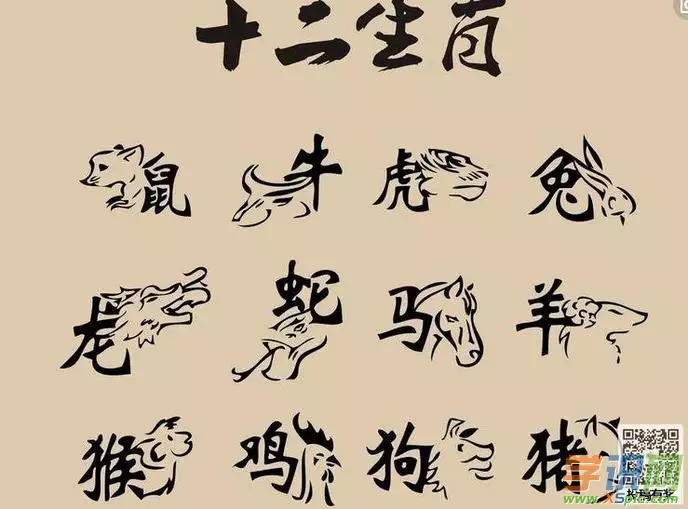 十二生肖
鼠 牛 虎 兔
龙 蛇 马 羊
猴 鸡 狗 猪
www.XSpic.com